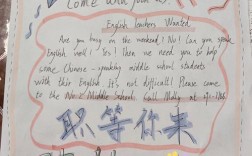 Come and join us!
English teachers Wanted
Are you busy on the weekend? No! Can you speak
English well? Yes! Then we need you to help
some Chinese-speaking middle school students
with their English. It's not difficult! Please come
to the No.1 Middle School. Call Molly at
职等你来